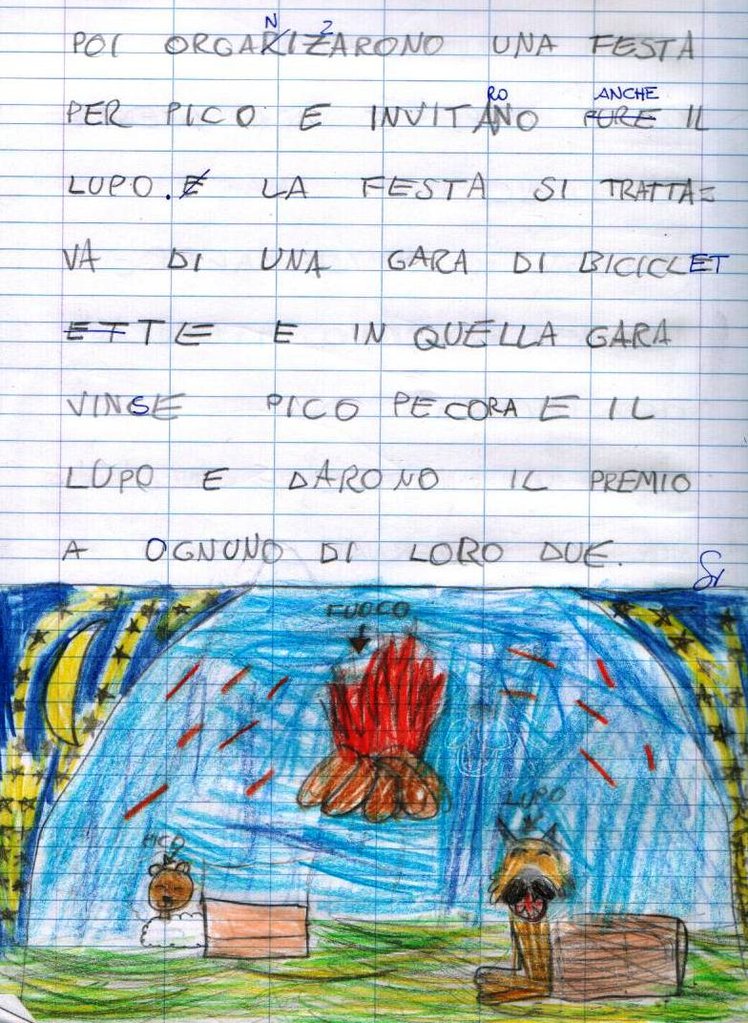 POI ORGANIZZARONO UNA FESTA
PER PICO E INVITARONO ANCHE IL
LUPO. LA FESTA SI TRATTA=
VA DI UNA GARA DI BICICLET
TE E IN QUELLA GARA
VINSE PICO PECORA E IL
LUPO E DARONO IL PREMIO
A OGNUNO DI LORO DUE.
Sì
FUOCO
LUPO
PICO